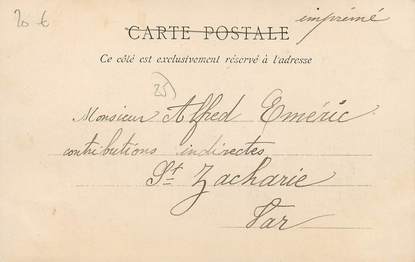 20 €
imprimé
CARTE POSTALE
Ce côté est exclusivement réservé à l'adresse
25
Monsieur Alfred Eméric
contributions indirectes
St Zacharie
Var